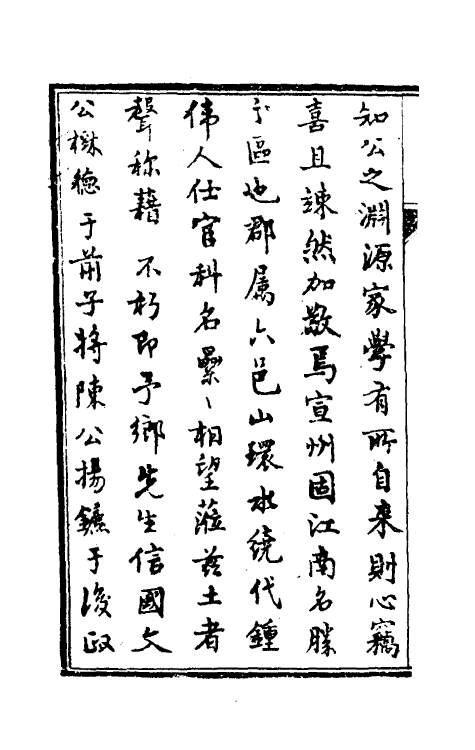 知公之淵源家學有所自来則心竊
喜且竦然加敬焉宣州固江南名勝
之區也郡属六邑山環水繞代鍾
偉人仕宦科名纍〻相望蒞兹土者
聲称藉 不朽即予鄉先生信國文
公樹德于前子將陳公揚鑣于後政